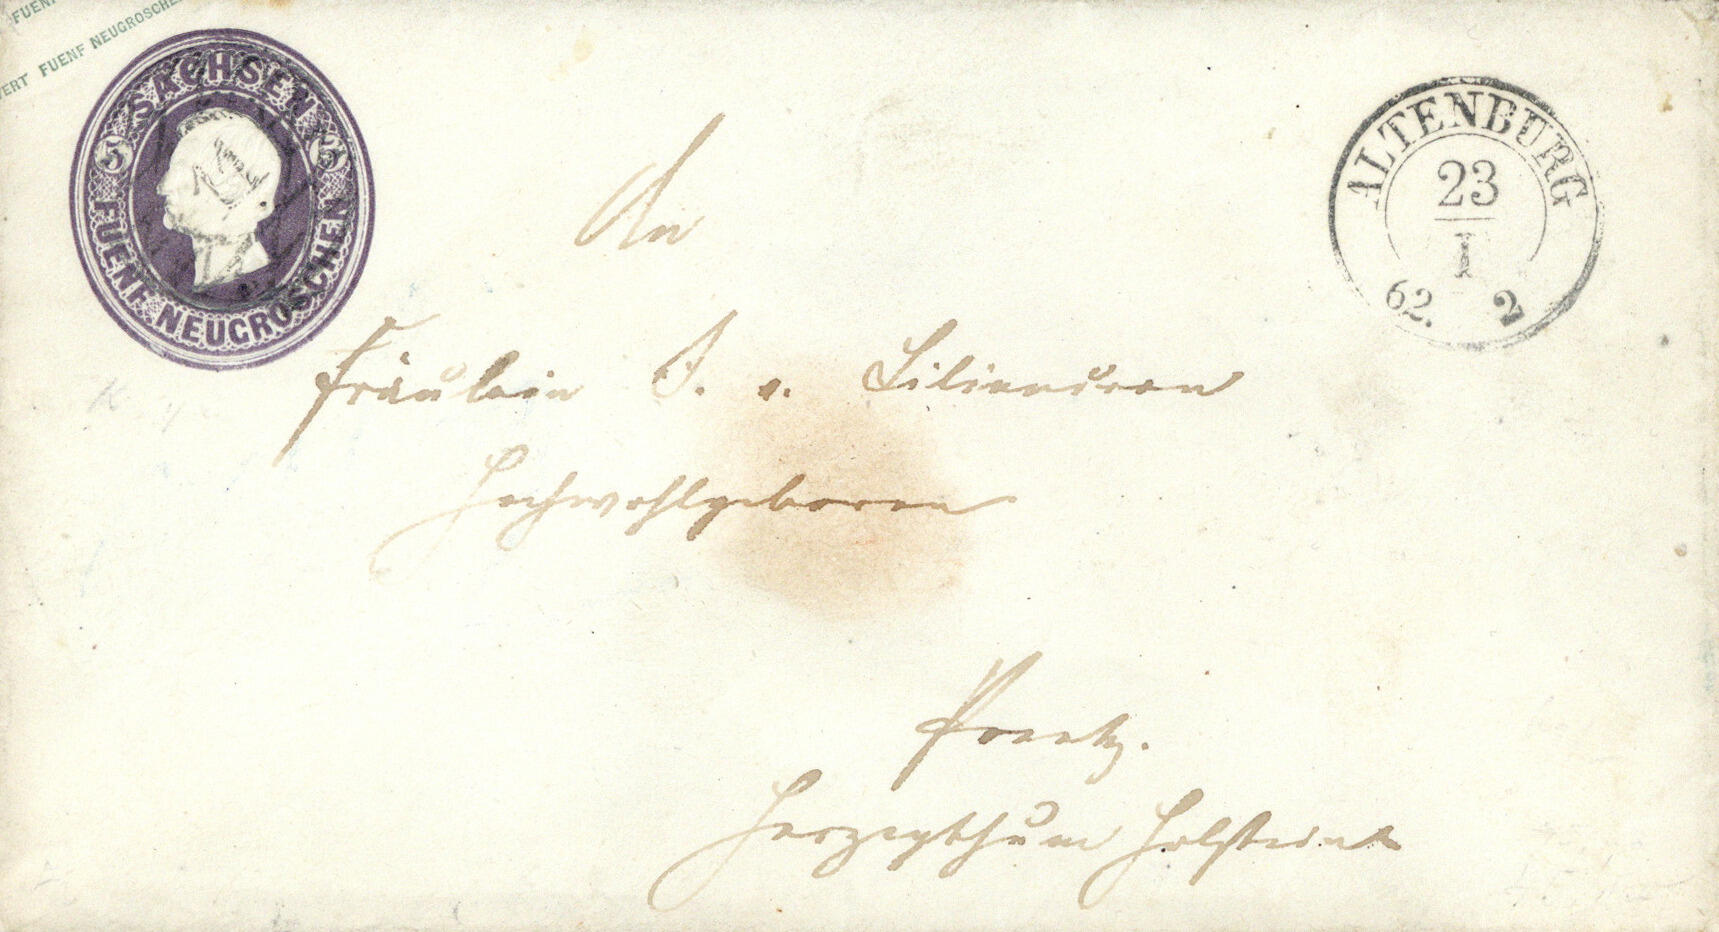 FUENF
VERT FUENF NEUGROSCHEN
SACHSEN
5 5
FUENF NEUGROSCHEN
ALTENBURG
23
I
62. 2
An
Fräulein J. v. Liliencron
Hochwohlgeboren
Preetz.
Herzogthum Holstein